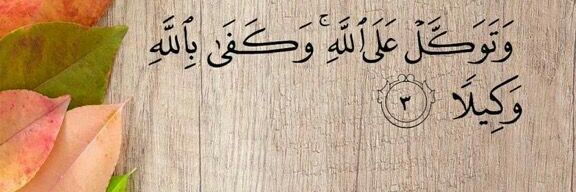 وَتَوَكَّلۡ عَلَى ٱللَّهِۚ وَكَفَىٰ بِٱللَّهِ
وَكِيلٗا ٣